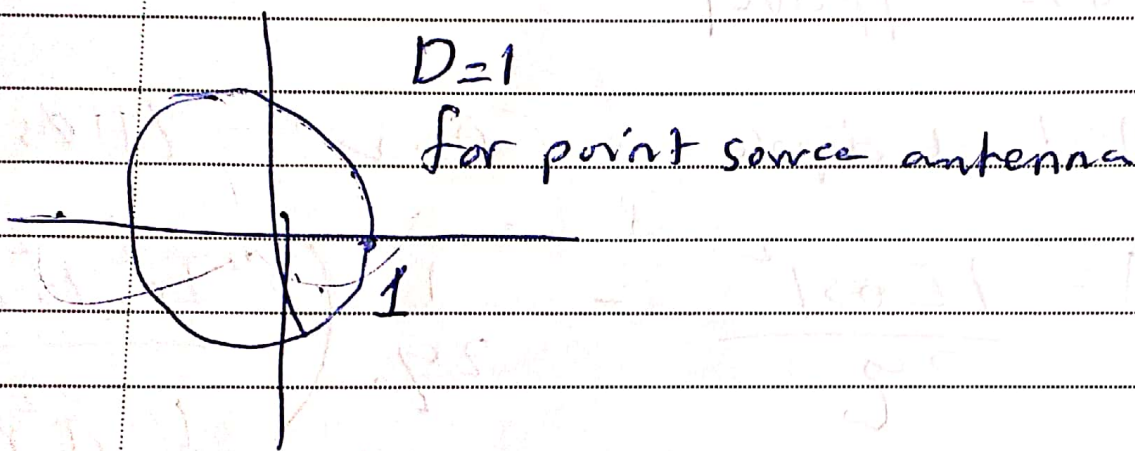 D=1
for point source antenna
1